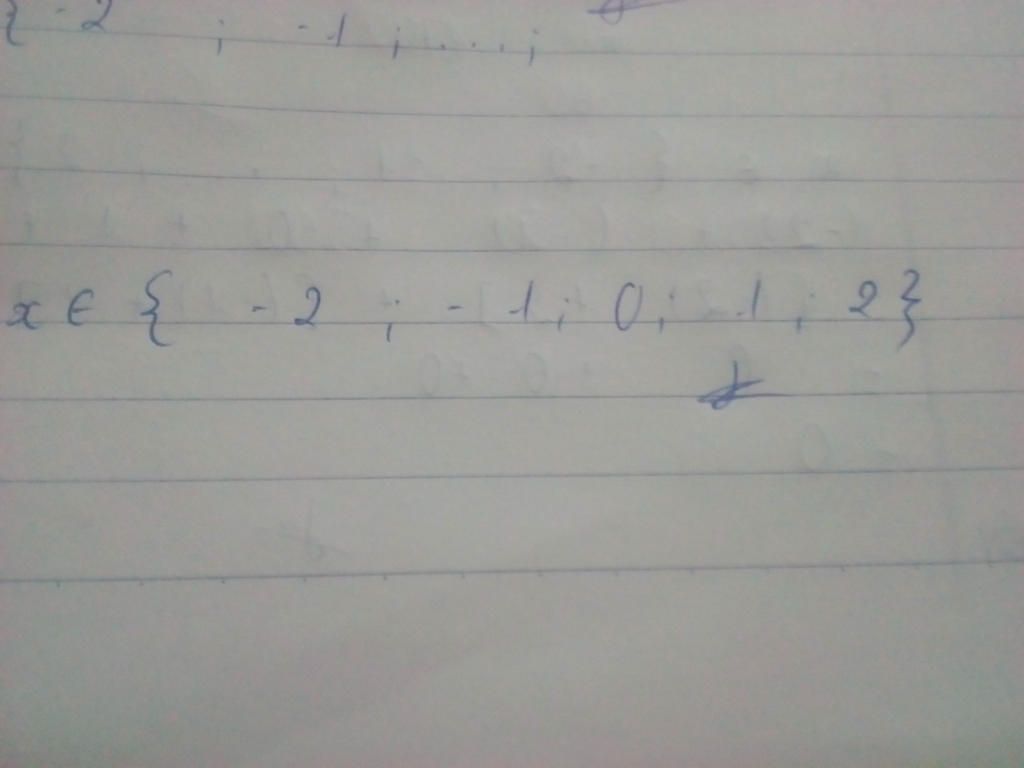 { -2 ; -1 ; ... ;
x ∈ { -2 ; -1 ; 0 ; 1 ; 2 }